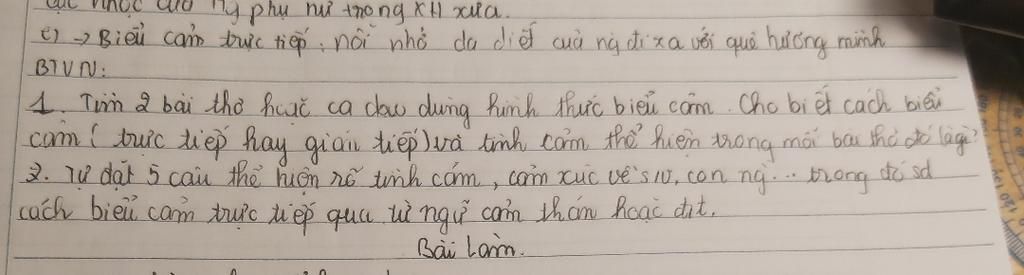 cực nhọc của ng phụ nữ trong XH xưa.
c) → Biểu cảm trực tiếp, nỗi nhớ da diết của ng đi xa với quê hương mình
BTVN:
1. Tìm 2 bài thơ hoặc ca dao dùng hình thức biểu cảm. Cho biết cách biểu
cảm (trực tiếp hay gián tiếp) và tình cảm thể hiện trong mỗi bài thơ đó là gì?
2. Tự đặt 5 câu thể hiện rõ tình cảm, cảm xúc về sự, con ng... trong đó sd
cách biểu cảm trực tiếp qua từ ngữ cảm thán hoặc đtt.
Bài làm.